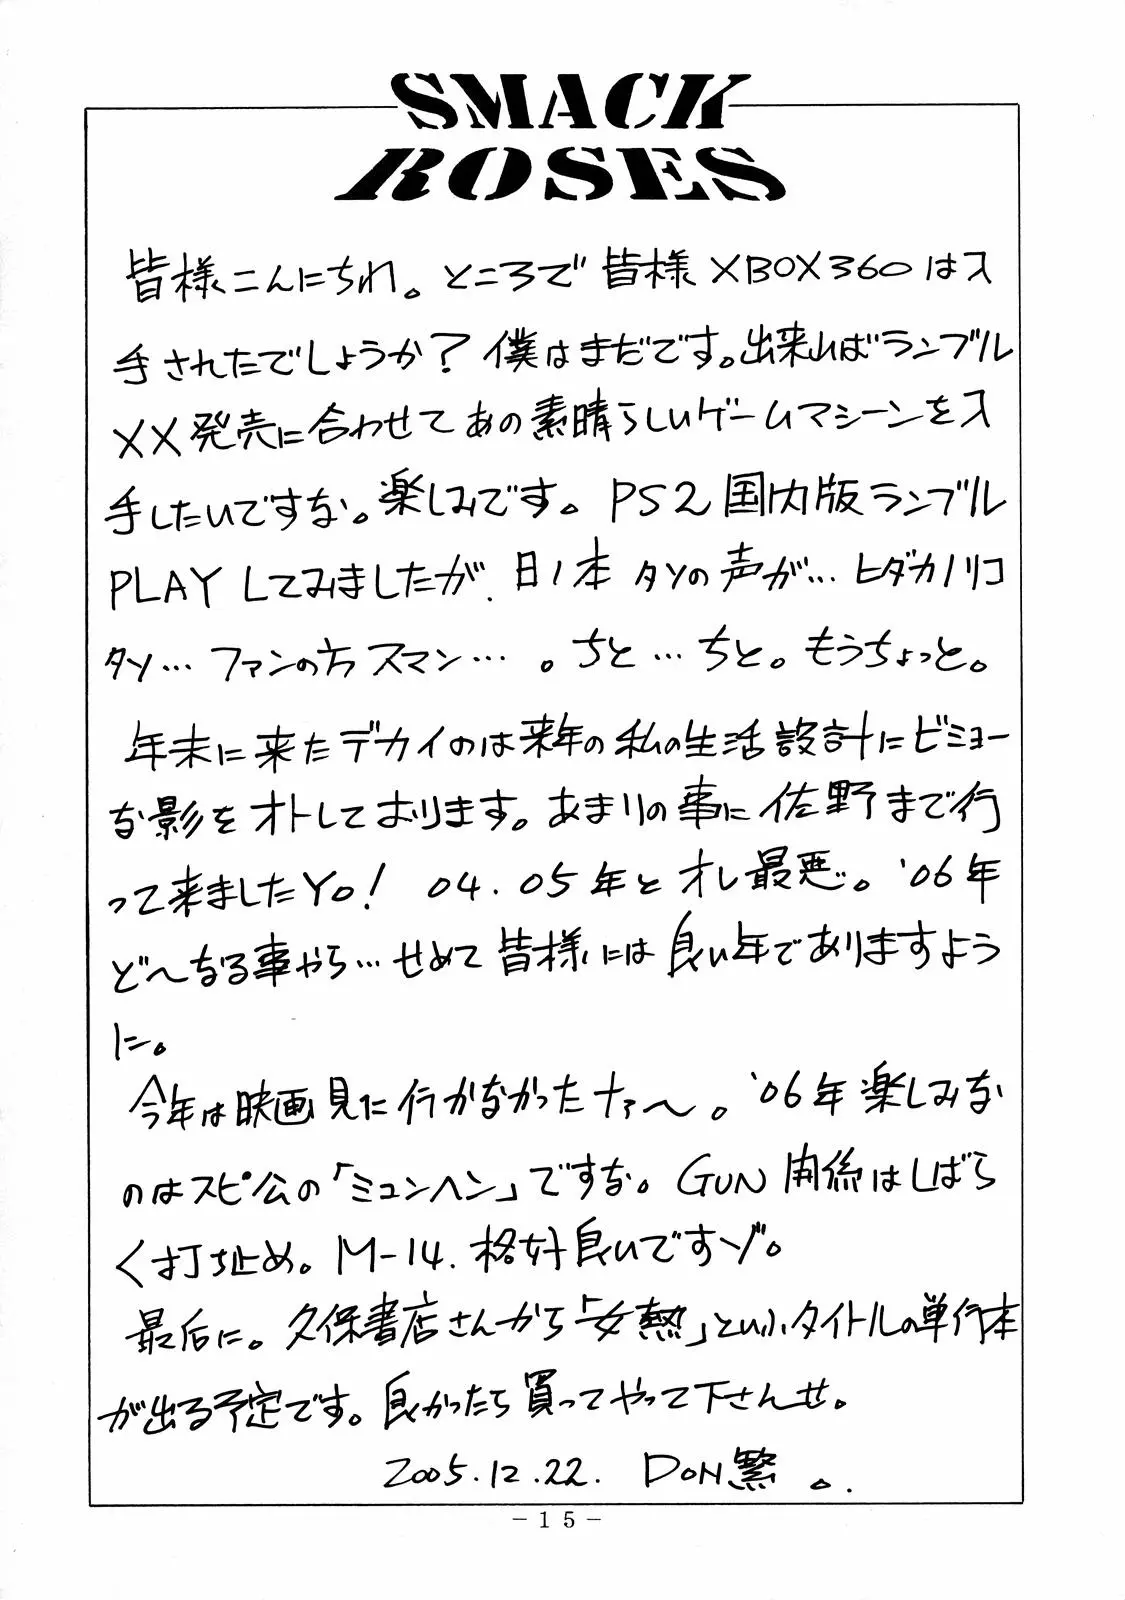 SMACK
ROSES
皆様こんにちわ。ところで皆様XBOX360は入
手されたでしょうか?僕はまだです。出来ればランブル
XX発売に合わせてあの素晴らしいゲームマシーンを入
手したいですな。楽しみです。PS2国内版ランブル
PLAYしてみましたが、日ノ本タソの声が…ヒダカノリコ
タソ…ファンの方スマン…。ちと…ちと。もうちょっと。
年末に来たデカイのは来年の私の生活設計にビミョー
な影をオトしております。あまりの事に佐野まで行
って来ましたYO! 04.05年とオレ最悪。'06年
ど〜なる事やら…せめて皆様には良い年でありますよう
に。
今年は映画見に行かなかったナァ〜。'06年楽しみな
のはスピ公の「ミュンヘン」ですな。GUN関係はしばら
く打ち止め。M-14.格好良いですゾ。
最后に。久保書店さんから「女熱」といふタイトルの単行本
が出る予定です。良かったら買ってやって下さんせ。
2005.12.22. DON繁 。.
－15－